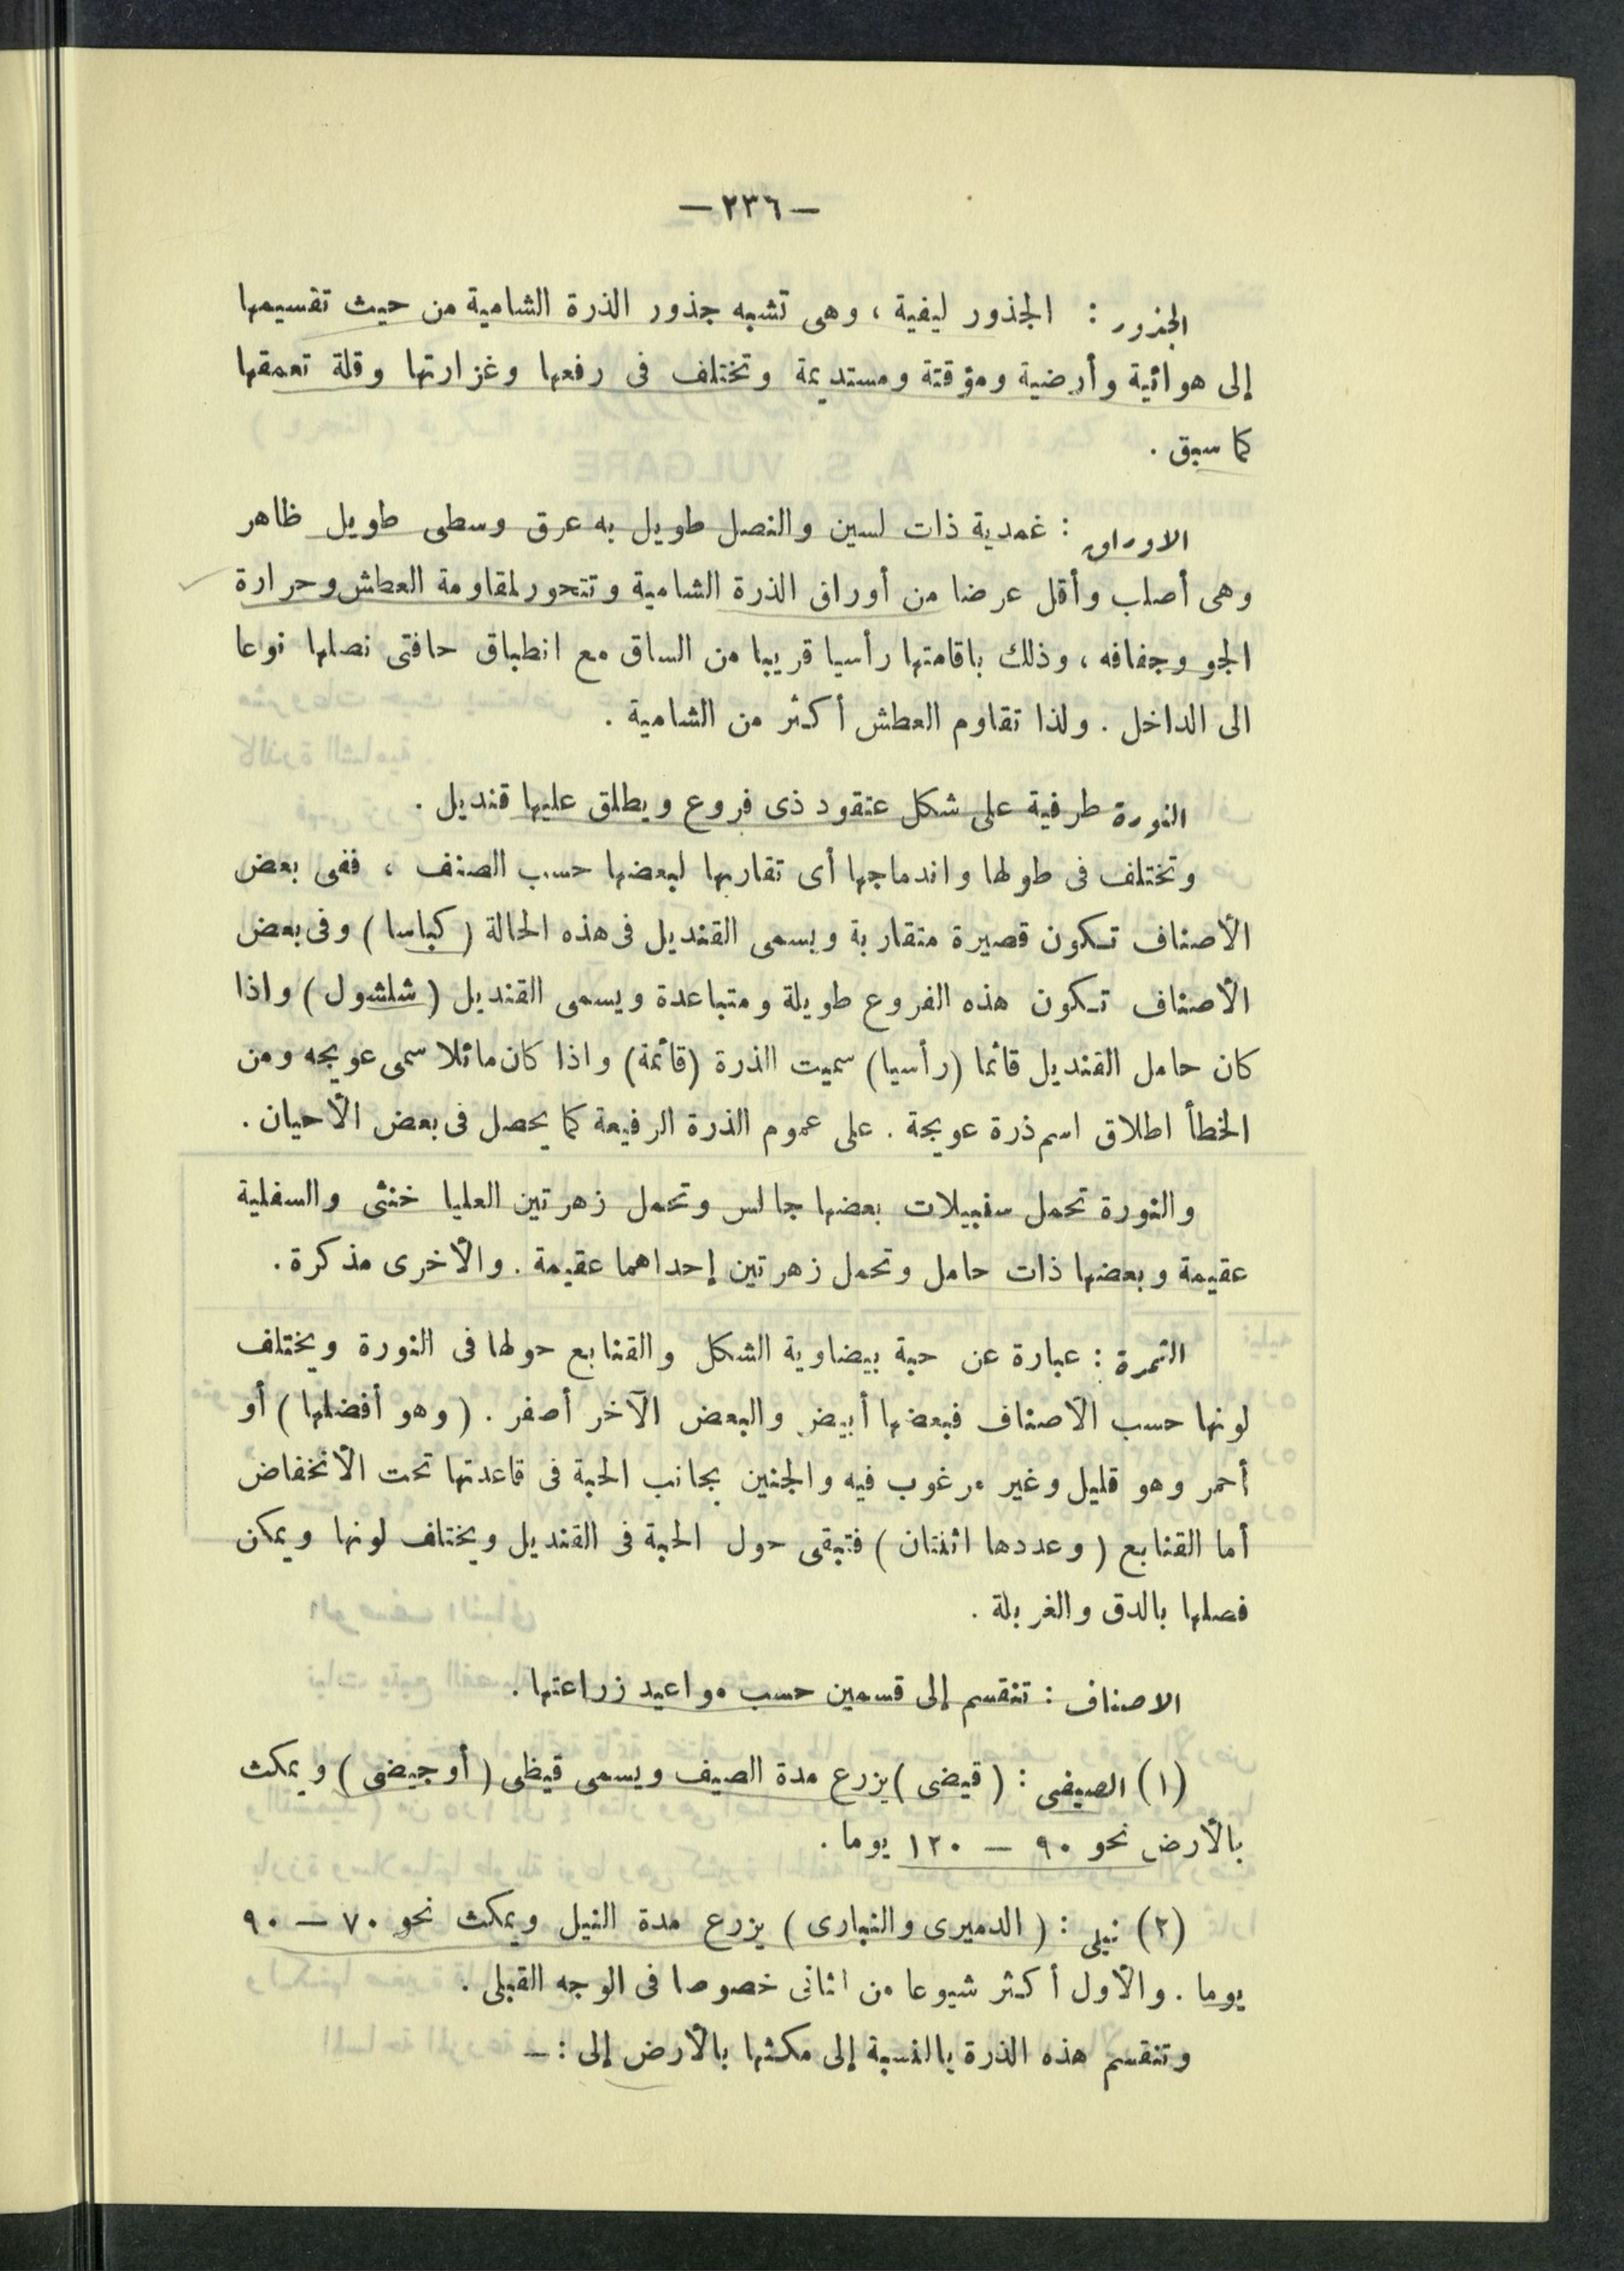 —٢٣٦—
الجذور : الجذور ليفية ، وهى تشبه جذور الذرة الشامية من حيث تقسيمها
إلى هوائية وأرضية ومؤقتة ومستديمة وتختلف فى رفعها وغزارتها وقلة تعمقها
كما سبق .
الاوراق : غمدية ذات لسين والنصل طويل به عرق وسطى طويل ظاهر
وهى أصلب وأقل عرضا من أوراق الذرة الشامية وتتحور لمقاومة العطش وحرارة
الجو وجفافه ، وذلك باقامتها رأسيا قريبا من الساق مع انطباق حافتى نصلها نوعا
الى الداخل . ولذا تقاوم العطش أكثر من الشامية .
النورة طرفية على شكل عنقود ذى فروع ويطلق عليها قنديل .
وتختلف فى طولها واندماجها أى تقاربها لبعضها حسب الصنف ، ففى بعض
الأصناف تكون قصيرة متقاربة ويسمى القنديل فى هذه الحالة ( كباسا ) وفى بعض
الأصناف تكون هذه الفروع طويلة ومتباعدة ويسمى القنديل ( شلشول ) واذا
كان حامل القنديل قائما (رأسيا) سميت الذرة (قائمة) واذا كان مائلا سمى عويجه ومن
الخطأ اطلاق اسم ذرة عويجة . على عموم الذرة الرفيعة كما يحصل فى بعض الأحيان .
والنورة تحمل سنبيلات بعضها جالس وتحمل زهرتين العليا خنثى والسفلية
عقيمة وبعضها ذات حامل وتحمل زهرتين إحداهما عقيمة . والأخرى مذكرة .
الثمرة : عبارة عن حبة بيضاوية الشكل والقنابع حولها فى النورة ويختلف
لونها حسب الأصناف فبعضها أبيض والبعض الآخر أصفر . ( وهو أفضلها ) أو
أحمر وهو قليل وغير مرغوب فيه والجنين بجانب الحبة فى قاعدتها تحت الأنخفاض
أما القنابع ( وعددها اثنتان ) فتبقى حول الحبة فى القنديل ويختلف لونها ويمكن
فصلها بالدق والغربلة .
الاصناف : تنقسم إلى قسمين حسب مواعيد زراعتها .
(١) الصيفى : ( قيضى ) يزرع مدة الصيف ويسمى قيظى ( أو جيضى ) ويمكث
بالأرض نحو ٩٠ — ١٢٠ يوما .
(٢) نيلى : ( الدميرى والنبارى ) يزرع مدة النيل ويمكث نحو ٧٠ — ٩٠
يوما . والأول أكثر شيوعا من اثانى خصوصا فى الوجه القبلى .
وتنقسم هذه الذرة بالنسبة إلى مكثها بالأرض إلى : —